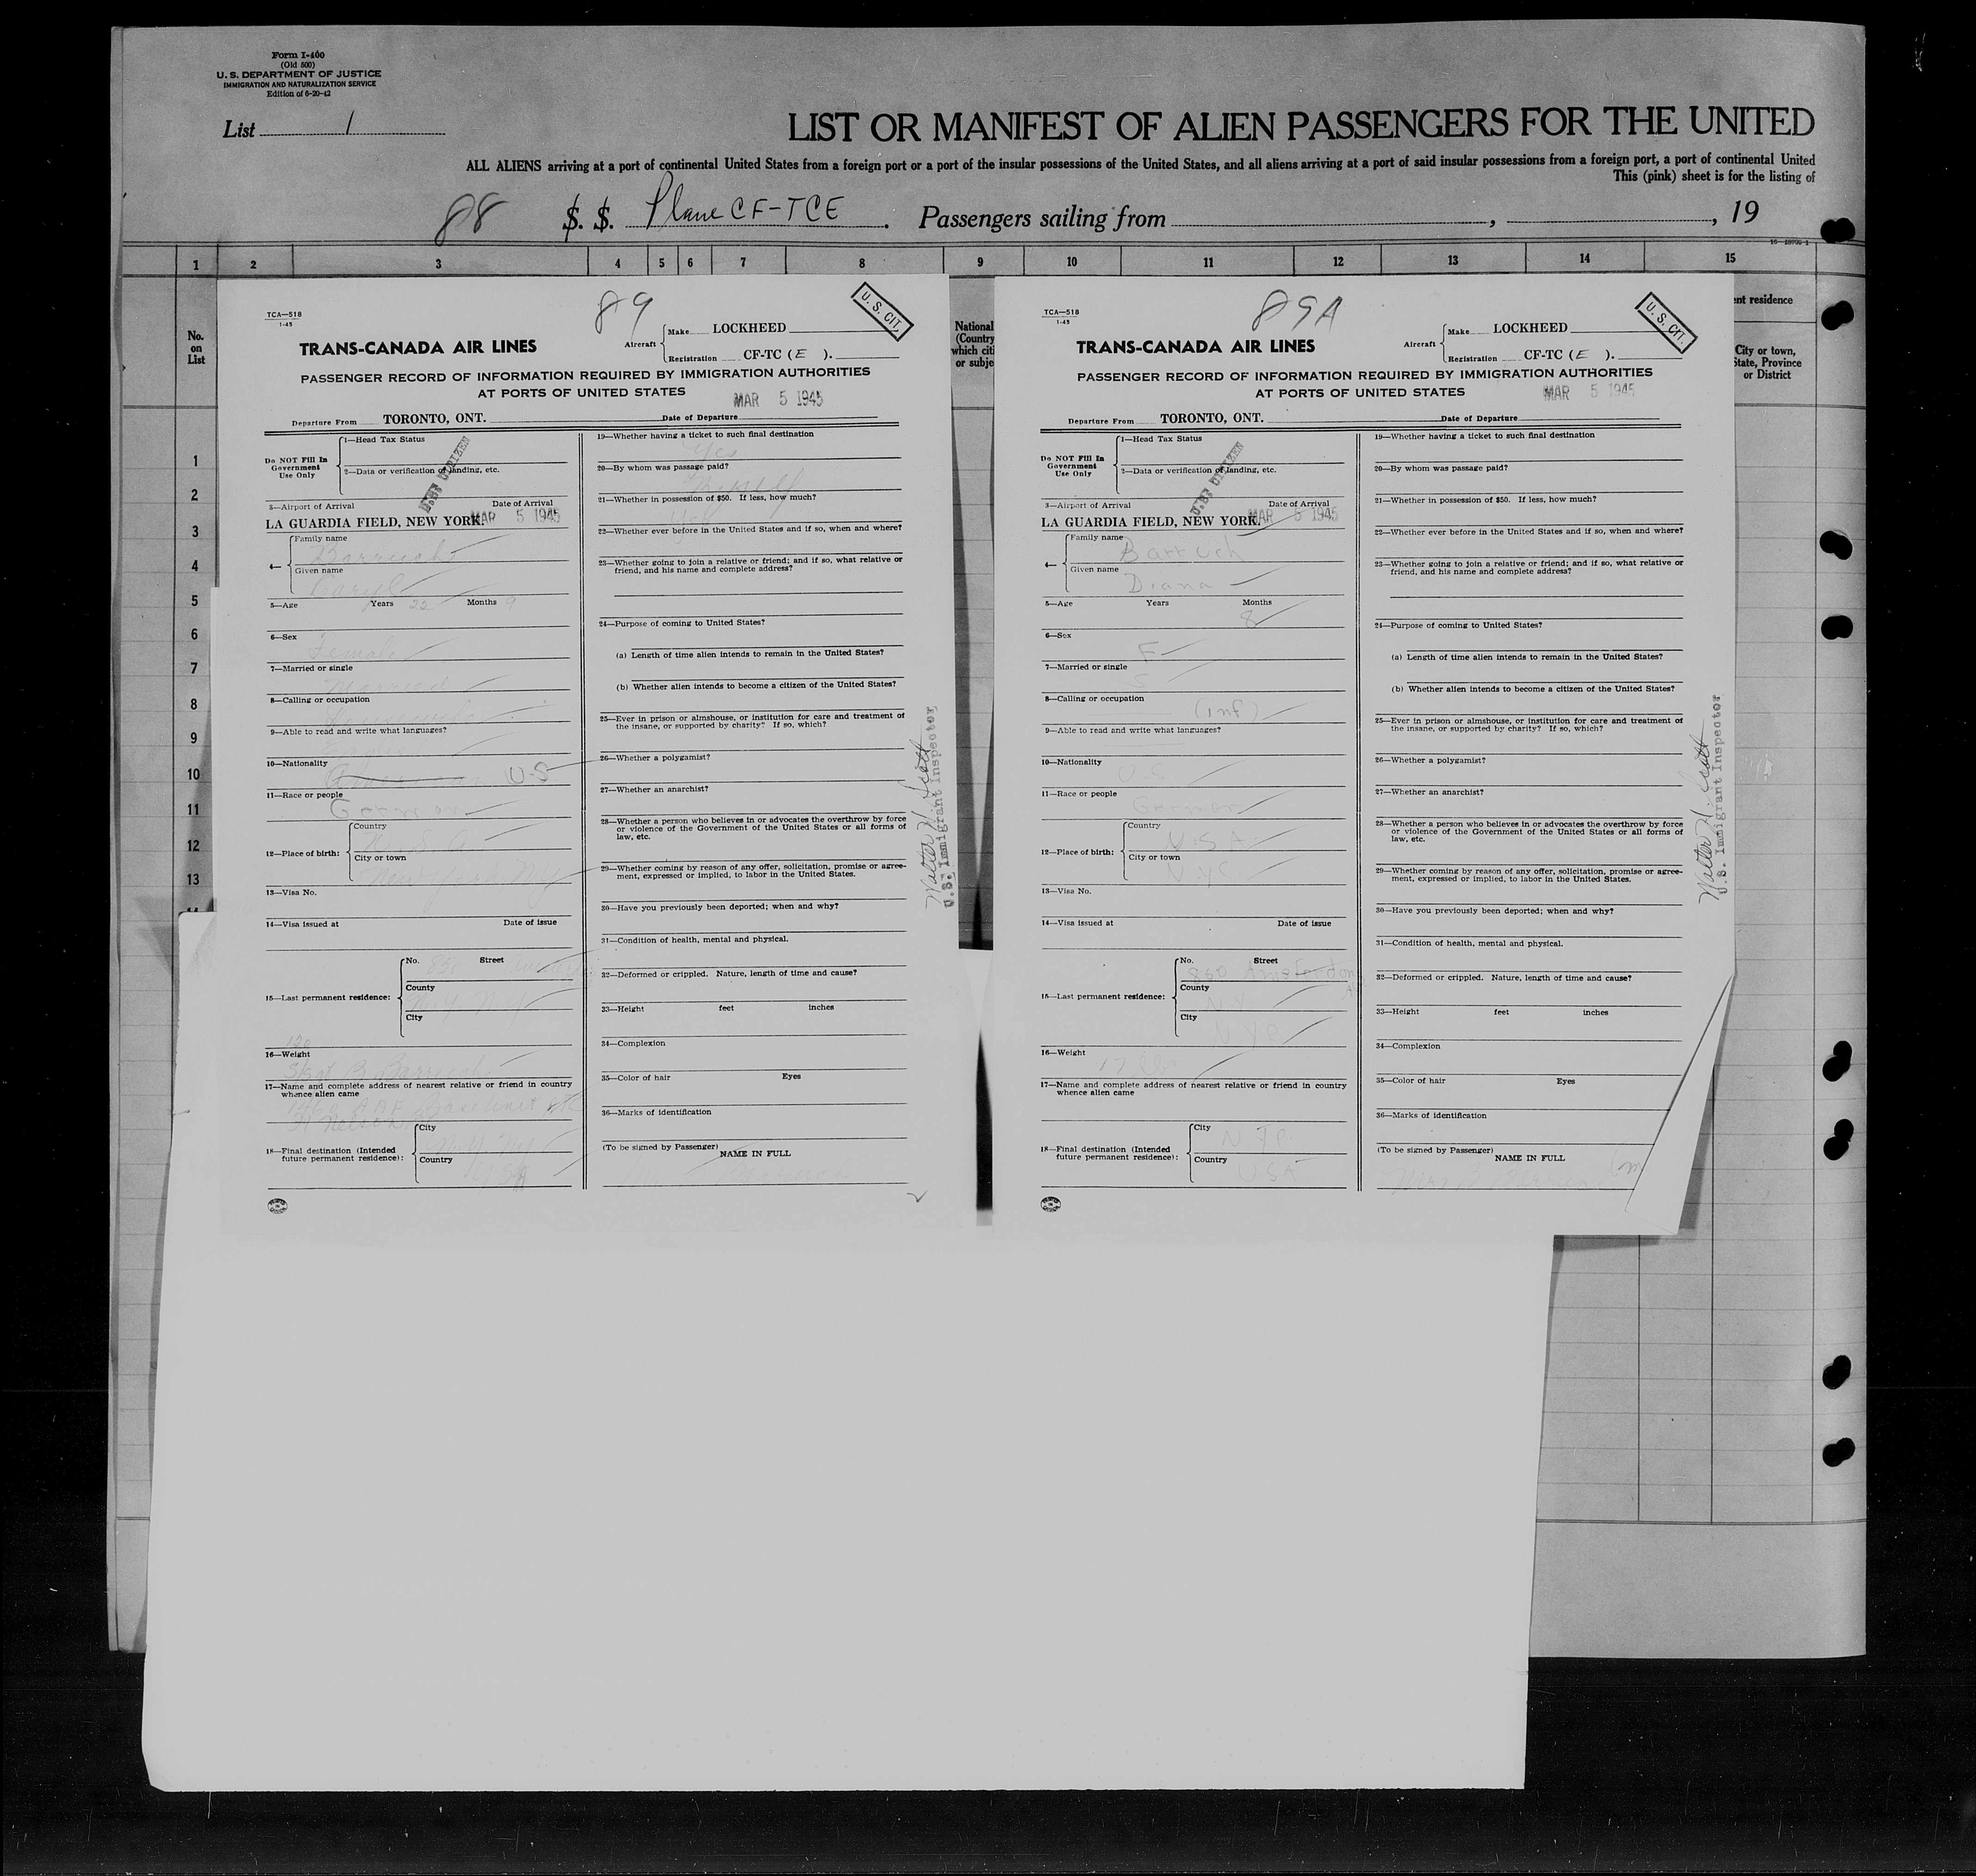 Form I-400
(Old 500)
U. S. DEPARTMENT OF JUSTICE
IMMIGRATION AND NATURALIZATION SERVICE
Edition of 6-20-42
List 1
LIST OR MANIFEST OF ALIEN PASSENGERS FOR THE UNITED
ALL ALIENS arriving at a port of continental United States from a foreign port or a port of the insular possessions of the United States, and all aliens arriving at a port of said insular possessions from a foreign port, a port of continental United
This (pink) sheet is for the listing of
88 S. S. Plane CF-TCE. Passengers sailing from , , 19
1 2 3 4 5 6 7 8 9 10 11 12 13 14 15
No.
on
List
1
2
3
4
5
6
7
8
9
10
11
12
13
National
(Country
which citi
or subje
ent residence
City or town,
State, Province
or District
TCA—518
1-45
89
U. S. CIT.
TRANS-CANADA AIR LINES
Aircraft
Make LOCKHEED
Registration CF-TC ( E ).
PASSENGER RECORD OF INFORMATION REQUIRED BY IMMIGRATION AUTHORITIES
AT PORTS OF UNITED STATES
MAR 5 1945
Departure From TORONTO, ONT. Date of Departure
Do NOT Fill In
Government
Use Only
1—Head Tax Status
2—Data or verification of landing, etc.
3—Airport of Arrival Date of Arrival
LA GUARDIA FIELD, NEW YORK. MAR 5 1945
4—
Family name
Barruch
Given name
5—Age Years 22 Months 9
6—Sex
Female
7—Married or single
Married
8—Calling or occupation
9—Able to read and write what languages?
10—Nationality
U-S
11—Race or people
German
12—Place of birth:
Country
City or town
13—Visa No.
14—Visa issued at Date of issue
15—Last permanent residence:
No. Street
County
City
120
16—Weight
17—Name and complete address of nearest relative or friend in country
whence alien came
18—Final destination (Intended
future permanent residence):
City
Country
19—Whether having a ticket to such final destination
Yes
20—By whom was passage paid?
Myself
21—Whether in possession of $50. If less, how much?
22—Whether ever before in the United States and if so, when and where?
23—Whether going to join a relative or friend; and if so, what relative or
friend, and his name and complete address?
24—Purpose of coming to United States?
(a) Length of time alien intends to remain in the United States?
(b) Whether alien intends to become a citizen of the United States?
25—Ever in prison or almshouse, or institution for care and treatment of
the insane, or supported by charity? If so, which?
26—Whether a polygamist?
27—Whether an anarchist?
28—Whether a person who believes in or advocates the overthrow by force
or violence of the Government of the United States or all forms of
law, etc.
29—Whether coming by reason of any offer, solicitation, promise or agree-
ment, expressed or implied, to labor in the United States.
30—Have you previously been deported; when and why?
31—Condition of health, mental and physical.
32—Deformed or crippled. Nature, length of time and cause?
33—Height feet inches
34—Complexion
35—Color of hair Eyes
36—Marks of identification
(To be signed by Passenger)
NAME IN FULL
Walter H. Scott
U.S. Immigrant Inspector
TCA—518
1-45
89A
U. S. CIT.
TRANS-CANADA AIR LINES
Aircraft
Make LOCKHEED
Registration CF-TC ( E ).
PASSENGER RECORD OF INFORMATION REQUIRED BY IMMIGRATION AUTHORITIES
AT PORTS OF UNITED STATES
MAR 5 1945
Departure From TORONTO, ONT. Date of Departure
Do NOT Fill In
Government
Use Only
1—Head Tax Status
2—Data or verification of landing, etc.
3—Airport of Arrival Date of Arrival
LA GUARDIA FIELD, NEW YORK. MAR 5 1945
4—
Family name
Barruch
Given name
Diana
5—Age Years Months
8
6—Sex
F
7—Married or single
S
8—Calling or occupation
(inf)
9—Able to read and write what languages?
10—Nationality
U-S
11—Race or people
German
12—Place of birth:
Country
U.S.A
City or town
N.Y.C
13—Visa No.
14—Visa issued at Date of issue
15—Last permanent residence:
No. Street
860 Amsterdam
County
N.Y
City
NYC
16—Weight
17 lbs
17—Name and complete address of nearest relative or friend in country
whence alien came
18—Final destination (Intended
future permanent residence):
City
NYC
Country
USA
19—Whether having a ticket to such final destination
20—By whom was passage paid?
21—Whether in possession of $50. If less, how much?
22—Whether ever before in the United States and if so, when and where?
23—Whether going to join a relative or friend; and if so, what relative or
friend, and his name and complete address?
24—Purpose of coming to United States?
(a) Length of time alien intends to remain in the United States?
(b) Whether alien intends to become a citizen of the United States?
25—Ever in prison or almshouse, or institution for care and treatment of
the insane, or supported by charity? If so, which?
26—Whether a polygamist?
27—Whether an anarchist?
28—Whether a person who believes in or advocates the overthrow by force
or violence of the Government of the United States or all forms of
law, etc.
29—Whether coming by reason of any offer, solicitation, promise or agree-
ment, expressed or implied, to labor in the United States.
30—Have you previously been deported; when and why?
31—Condition of health, mental and physical.
32—Deformed or crippled. Nature, length of time and cause?
33—Height feet inches
34—Complexion
35—Color of hair Eyes
36—Marks of identification
(To be signed by Passenger)
NAME IN FULL
Walter H. Scott
U.S. Immigrant Inspector